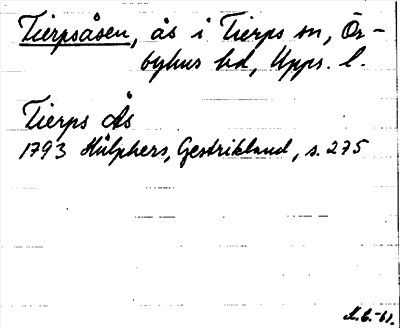 Tierpsåsen, ås i Tierps sn, Ör-
byhus hd, Upps. l.
Tierps Ås
1793 Hülphers, Gestrikland, s. 275